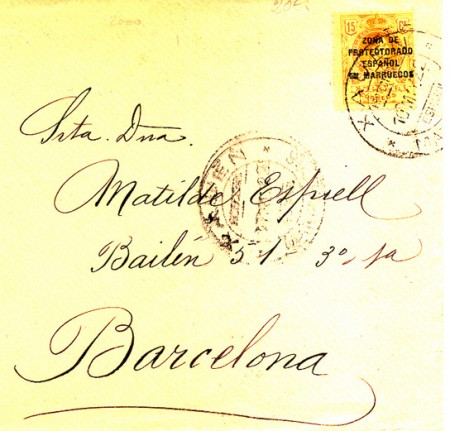 2000
15 Cs
ZONA DE
PROTECTORADO
ESPAÑOL
EN MARRUECOS
Srta. Dna.
Matilde Espiell
Bailén 51 3º 1a
Barcelona